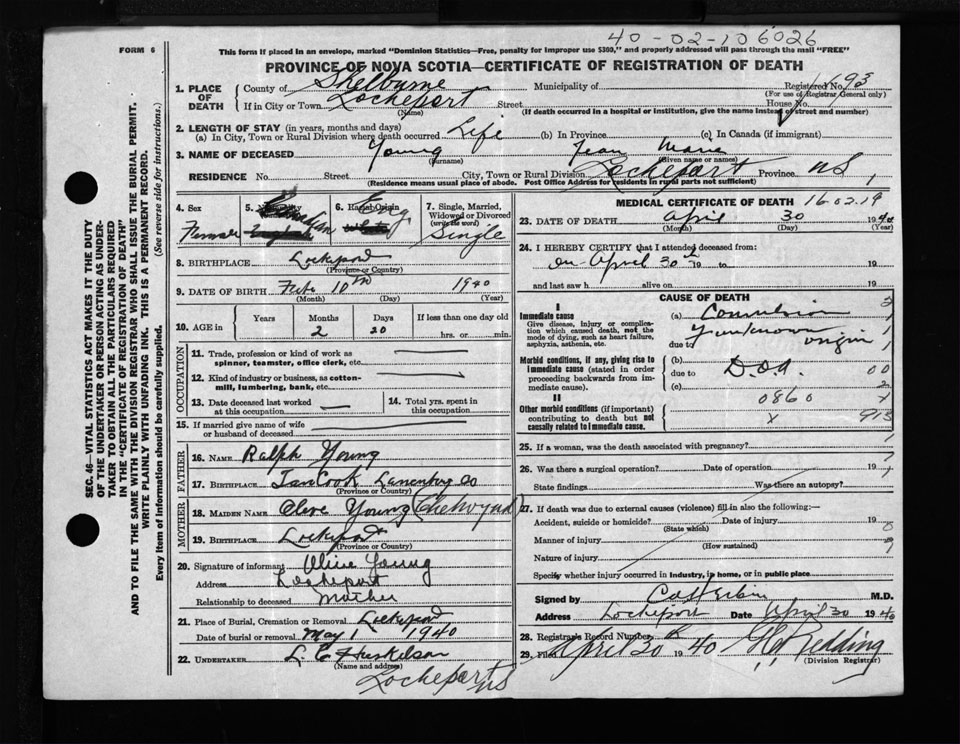 40-02-106026
FORM 6
This form if placed in an envelope, marked "Dominion Statistics—Free, penalty for improper use $300," and properly addressed will pass through the mail "FREE"
PROVINCE OF NOVA SCOTIA—CERTIFICATE OF REGISTRATION OF DEATH
1. PLACE OF DEATH
County of Shelburne Municipality of Registered No. 693
(For use of Registrar General only)
If in City or Town Lockeport Street House No.
(Name) (If death occurred in a hospital or institution, give the name instead of street and number)
2. LENGTH OF STAY (in years, months and days)
(a) In City, Town or Rural Division where death occurred Life (b) In Province (c) In Canada (if immigrant)
3. NAME OF DECEASED Young Jean Marie
(Surname) (Given name or names)
RESIDENCE No. Street City, Town or Rural Division Lockeport Province NS
(Residence means usual place of abode. Post Office Address for residents in rural parts not sufficient)
4. Sex
Female
5.
Canadian
6. Racial Origin
Eng
7. Single, Married, Widowed or Divorced (write the word)
Single
8. BIRTHPLACE Lockeport
(Province or Country)
9. DATE OF BIRTH Feb 10th 1940
(Month) (Day) (Year)
10. AGE in Years Months Days If less than one day old
2 20 hrs. or min.
OCCUPATION
11. Trade, profession or kind of work as spinner, teamster, office clerk, etc.
12. Kind of industry or business, as cotton-mill, lumbering, bank, etc.
13. Date deceased last worked at this occupation
14. Total yrs. spent in this occupation
15. If married give name of wife or husband of deceased
FATHER
16. NAME Ralph Young
17. BIRTHPLACE Tancook Lunenburg Co
(Province or Country)
MOTHER
18. MAIDEN NAME Olive Young
19. BIRTHPLACE Lockeport
(Province or Country)
20. Signature of informant Olive Young
Address Lockeport
Relationship to deceased Mother
21. Place of Burial, Cremation or Removal Lockeport
Date of burial or removal May 1 1940
22. UNDERTAKER L. C Huskilson
(Name and address)
Lockeport NS
MEDICAL CERTIFICATE OF DEATH 16.02.19
23. DATE OF DEATH April 30 1940
(Month) (Day) (Year)
24. I HEREBY CERTIFY that I attended deceased from:
on April 30th 19 to 19
and last saw h alive on 19
CAUSE OF DEATH
I
Immediate cause (a) Convulsion
Give disease, injury or complication which caused death, not the mode of dying, such as heart failure, asphyxia, asthenia, etc.
due to unknown origin
Morbid conditions, if any, giving rise to immediate cause (stated in order proceeding backwards from immediate cause)
(b)
due to D.O.A.
(c)
II
Other morbid conditions (if important) contributing to death but not causally related to immediate cause.
0860
x
25. If a woman, was the death associated with pregnancy?
26. Was there a surgical operation? Date of operation 19
State findings Was there an autopsy?
27. If death was due to external causes (violence) fill in also the following:—
Accident, suicide or homicide? Date of injury 19
(State which)
Manner of injury
(How sustained)
Nature of injury
Specify whether injury occurred in industry, in home, or in public place
Signed by M.D.
Address Lockeport Date April 30 1940
28. Registrar's Record Number
29. Filed April 30 1940 Redding
(Division Registrar)
SEC. 46—VITAL STATISTICS ACT MAKES IT THE DUTY
OF THE UNDERTAKER OR PERSON ACTING AS UNDER-
TAKER TO OBTAIN ALL THE PARTICULARS REQUIRED
IN THE "CERTIFICATE OF REGISTRATION OF DEATH"
AND TO FILE THE SAME WITH THE DIVISION REGISTRAR WHO SHALL ISSUE THE BURIAL PERMIT.
WRITE PLAINLY WITH UNFADING INK. THIS IS A PERMANENT RECORD.
Every item of information should be carefully supplied. (See reverse side for instructions.)